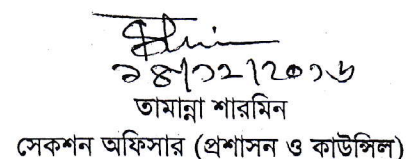 ১৪/১২/২০১৬
তামান্না শারমিন
সেকশন অফিসার (প্রশাসন ও কাউন্সিল)